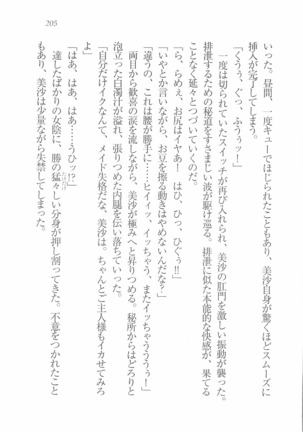 205
った。昼間、一度キューでほじられたこともあり、美沙自身が驚くほどスムーズに
挿入が完了してしまう。
「くうぅ、ぐっ、ふうぅッー」
一度は切られていたスイッチが再び入れられ、美沙の肛門を激しい振動が襲った。
排泄するための秘道をすさまじい波が駆け巡る。排泄に似た本能的な快感が、果てる
ことなく延々とつづいていく。
「ら、らめぇ、お尻はイヤあー　はひ、ひっ、ひぐぅ!!」
「いやとか言いながら、お豆を擦る動きはやめないんだな?」
「違うの、これは腰が勝手に……ヒイィッ、イッちゃう、またイッちゃうううぅ!」
両目から歓喜の涙を流しながら、美沙が極みへと昇りつめる。秘所からはどろりと
泡立った白濁汁が溢れ、張りつめた内腿を伝い落ちていった。
「自分だけイクなんて、メイド失格だな、美沙は。ちゃんとご主人様もイカせてみろ
よ」
「はぁ、はあ、はあ……うひッ?」
達したばかりの女陰に、勝の猛々しい分身が押し割ってきた。不意をつかれたこと
もあり、美沙は少量ながら失禁してしまった。